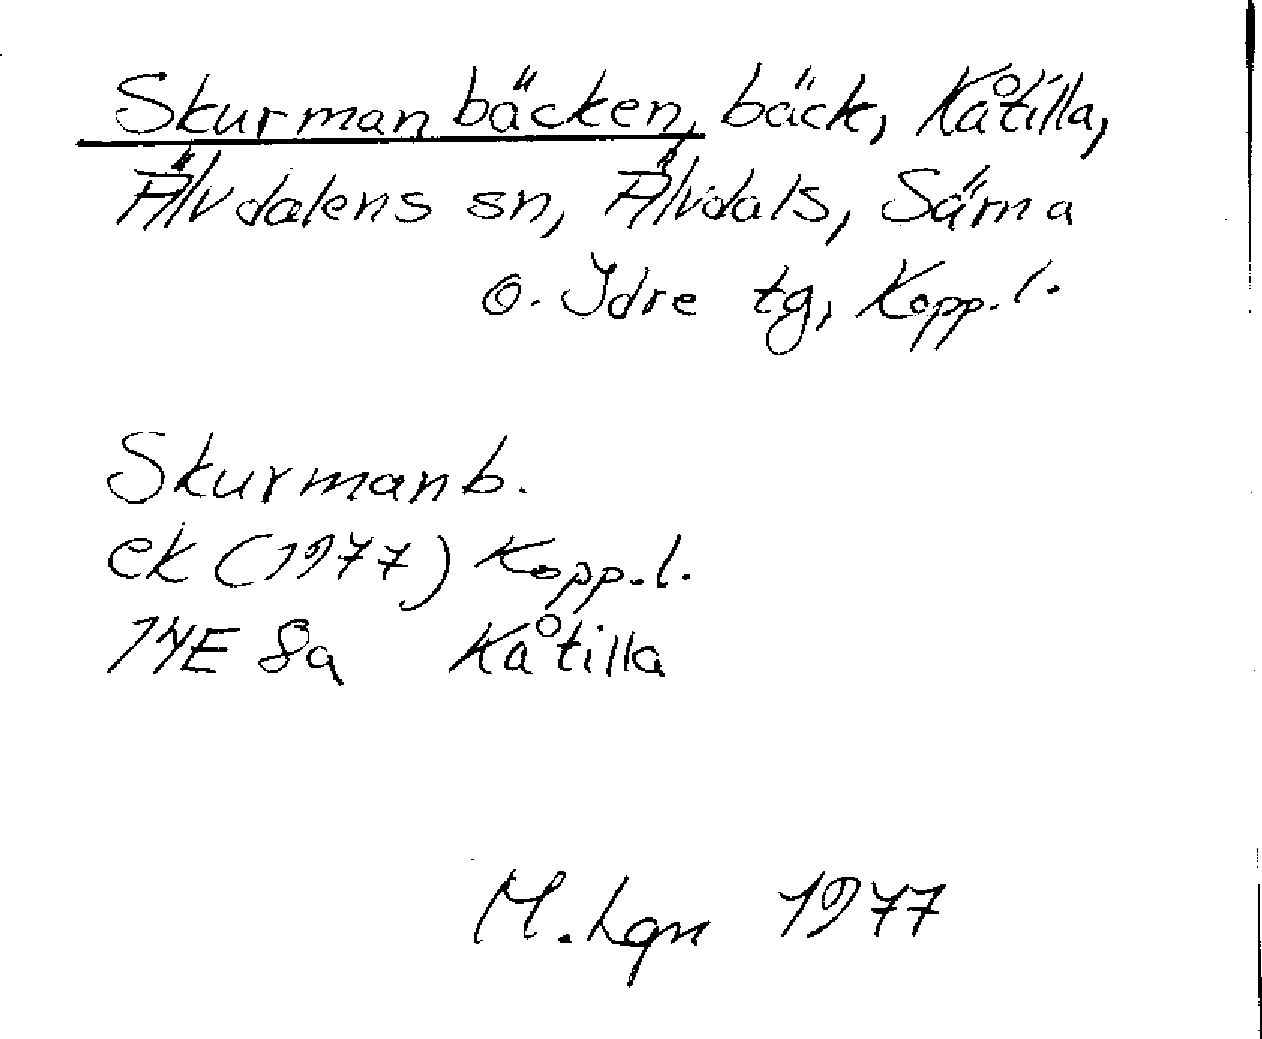 Skurmanbäcken, bäck, Kåtilla,
Älvdalens sn, Älvdals, Särna
o. Idre tg, Kopp. l.
Skurmanb.
ek (1977) Kopp. l.
14E 8a Kåtilla
M. Lgn 1977